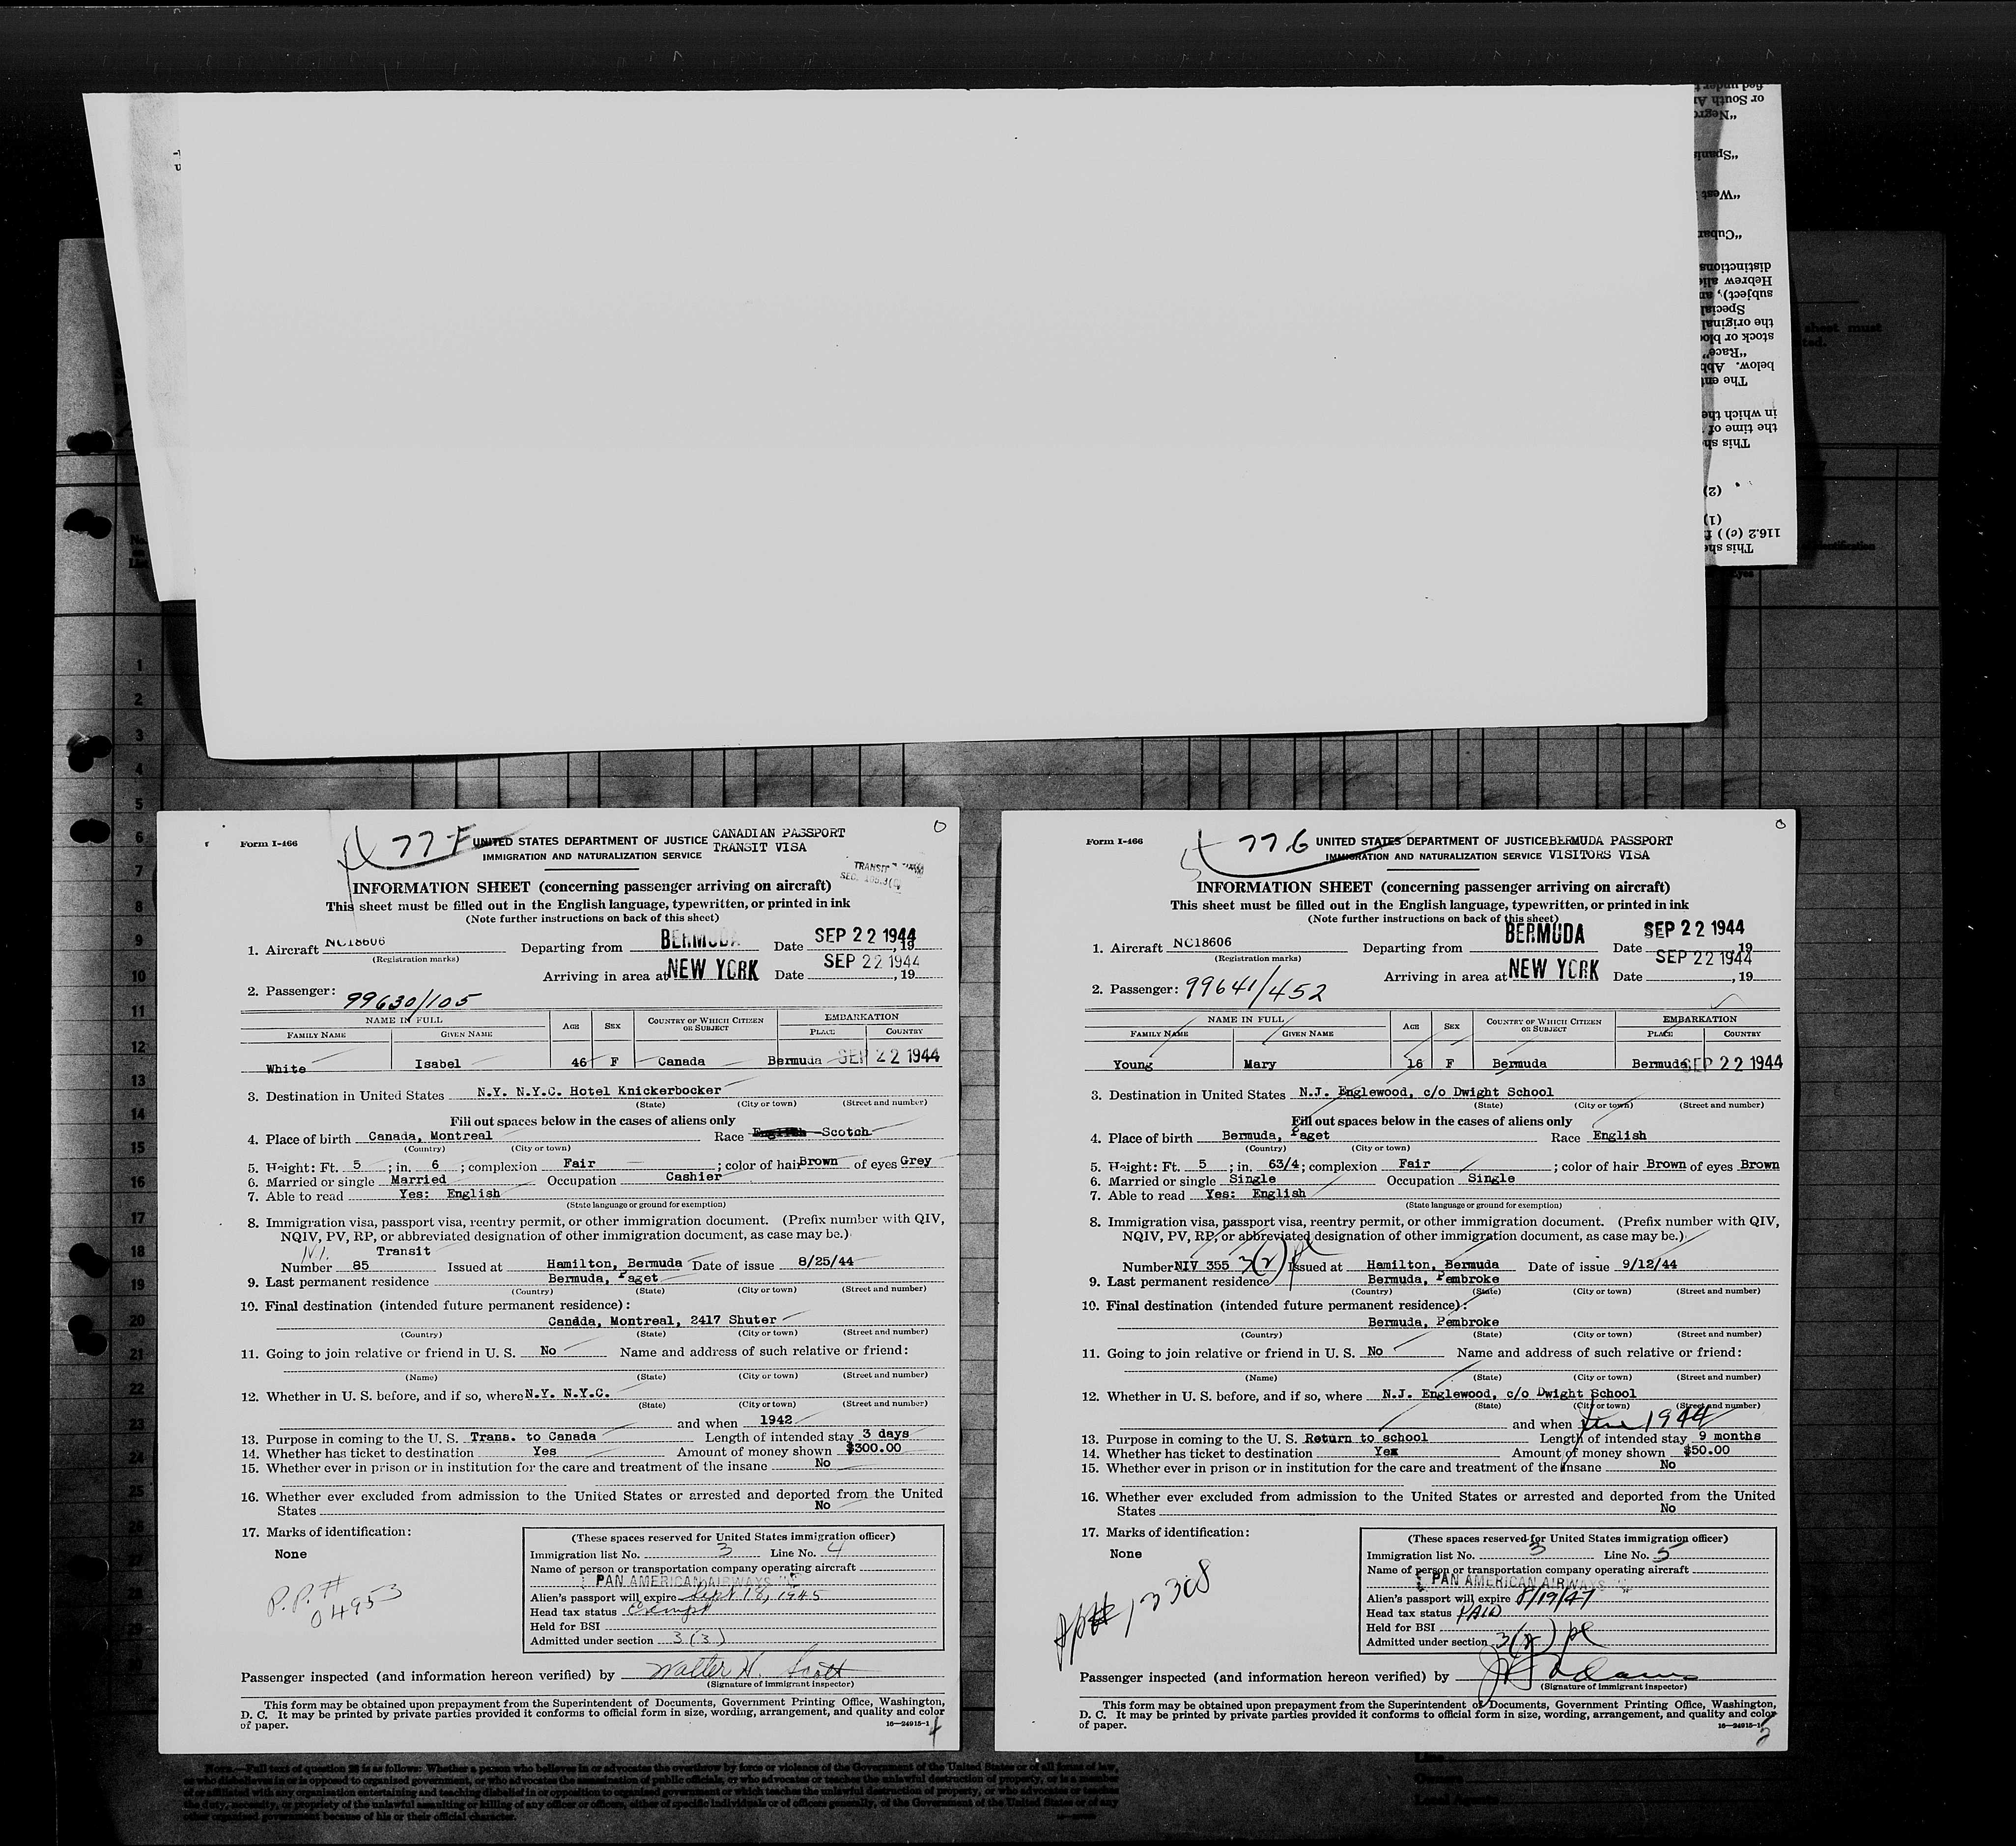 Form I-466
77-F UNITED STATES DEPARTMENT OF JUSTICE CANADIAN PASSPORT
IMMIGRATION AND NATURALIZATION SERVICE TRANSIT VISA
INFORMATION SHEET (concerning passenger arriving on aircraft)
This sheet must be filled out in the English language, typewritten, or printed in ink
(Note further instructions on back of this sheet)
1. Aircraft NC18606 Departing from BERMUDA Date SEP 22 1944, 19
(Registration marks)
Arriving in area at NEW YORK Date SEP 22 1944, 19
2. Passenger: 99630/105
NAME IN FULL AGE SEX COUNTRY OF WHICH CITIZEN OR SUBJECT EMBARKATION
FAMILY NAME GIVEN NAME PLACE COUNTRY
White Isabel 46 F Canada Bermuda SEP 22 1944
3. Destination in United States N.Y. N.Y.C. Hotel Knickerbocker
(State) (City or town) (Street and number)
Fill out spaces below in the cases of aliens only
4. Place of birth Canada, Montreal Race English Scotch
(Country) (City or town)
5. Height: Ft. 5 ; in. 6 ; complexion Fair ; color of hair Brown of eyes Grey
6. Married or single Married Occupation Cashier
7. Able to read Yes: English
(State language or ground for exemption)
8. Immigration visa, passport visa, reentry permit, or other immigration document. (Prefix number with QIV,
NQIV, PV, RP, or abbreviated designation of other immigration document, as case may be.)
Transit
Number 85 Issued at Hamilton, Bermuda Date of issue 8/25/44
9. Last permanent residence Bermuda, Paget
(Country) (State) (City or town) (Street and number)
10. Final destination (intended future permanent residence):
Canada, Montreal, 2417 Shuter
(Country) (State) (City or town) (Street and number)
11. Going to join relative or friend in U. S. No Name and address of such relative or friend:
(Name) (State) (City or town) (Street and number)
12. Whether in U. S. before, and if so, where N.Y. N.Y.C.
(State) (City or town) (Street and number)
and when 1942
13. Purpose in coming to the U. S. Trans. to Canada Length of intended stay 3 days
14. Whether has ticket to destination Yes Amount of money shown $300.00
15. Whether ever in prison or in institution for the care and treatment of the insane No
16. Whether ever excluded from admission to the United States or arrested and deported from the United
States No
17. Marks of identification:
None
P.P.# 04953
(These spaces reserved for United States immigration officer)
Immigration list No. 3 Line No. 4
Name of person or transportation company operating aircraft
PAN AMERICAN AIRWAYS
Alien's passport will expire Sept 18, 1945
Head tax status Exempt
Held for BSI
Admitted under section 3(3)
Passenger inspected (and information hereon verified) by Walter H. Scott
(Signature of immigrant inspector)
This form may be obtained upon prepayment from the Superintendent of Documents, Government Printing Office, Washington,
D. C. It may be printed by private parties provided it conforms to official form in size, wording, arrangement, and quality and color
of paper. 16—24915-1
4
Form I-466
77.G UNITED STATES DEPARTMENT OF JUSTICE BERMUDA PASSPORT
IMMIGRATION AND NATURALIZATION SERVICE VISITORS VISA
INFORMATION SHEET (concerning passenger arriving on aircraft)
This sheet must be filled out in the English language, typewritten, or printed in ink
(Note further instructions on back of this sheet)
1. Aircraft NC18606 Departing from BERMUDA Date SEP 22 1944, 19
(Registration marks)
Arriving in area at NEW YORK Date SEP 22 1944, 19
2. Passenger: 99641/452
NAME IN FULL AGE SEX COUNTRY OF WHICH CITIZEN OR SUBJECT EMBARKATION
FAMILY NAME GIVEN NAME PLACE COUNTRY
Young Mary 16 F Bermuda Bermuda SEP 22 1944
3. Destination in United States N.J. Englewood, c/o Dwight School
(State) (City or town) (Street and number)
Fill out spaces below in the cases of aliens only
4. Place of birth Bermuda, Paget Race English
(Country) (City or town)
5. Height: Ft. 5 ; in. 63/4; complexion Fair ; color of hair Brown of eyes Brown
6. Married or single Single Occupation Single
7. Able to read Yes: English
(State language or ground for exemption)
8. Immigration visa, passport visa, reentry permit, or other immigration document. (Prefix number with QIV,
NQIV, PV, RP, or abbreviated designation of other immigration document, as case may be.)
Number NIV 355 3(2) Issued at Hamilton, Bermuda Date of issue 9/12/44
9. Last permanent residence Bermuda, Pembroke
(Country) (State) (City or town) (Street and number)
10. Final destination (intended future permanent residence):
Bermuda, Pembroke
(Country) (State) (City or town) (Street and number)
11. Going to join relative or friend in U. S. No Name and address of such relative or friend:
(Name) (State) (City or town) (Street and number)
12. Whether in U. S. before, and if so, where N.J. Englewood, c/o Dwight School
(State) (City or town) (Street and number)
and when June 1944
13. Purpose in coming to the U. S. Return to school Length of intended stay 9 months
14. Whether has ticket to destination Yes Amount of money shown $50.00
15. Whether ever in prison or in institution for the care and treatment of the insane No
16. Whether ever excluded from admission to the United States or arrested and deported from the United
States No
17. Marks of identification:
None
(These spaces reserved for United States immigration officer)
Immigration list No. 3 Line No. 5
Name of person or transportation company operating aircraft
PAN AMERICAN AIRWAYS
Alien's passport will expire 8/19/47
Head tax status PAID
Held for BSI
Admitted under section 3(2)
Passenger inspected (and information hereon verified) by
(Signature of immigrant inspector)
This form may be obtained upon prepayment from the Superintendent of Documents, Government Printing Office, Washington,
D. C. It may be printed by private parties provided it conforms to official form in size, wording, arrangement, and quality and color
of paper. 16—24915-1
5